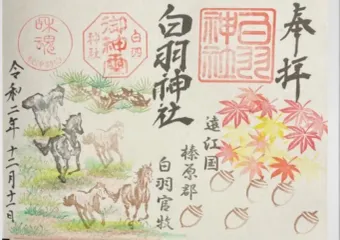 奉拝
白羽
神社
遠江国
榛原郡
白羽官牧
白羽神社
白羽
神社
令和二年 十二月十一日